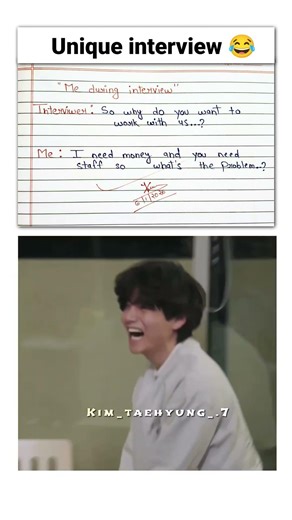 Unique interview 😂
"Me during interview"
Interviwer : So why do you want to
work with us...?
Me : I need money and you need
staff so what's the Problem..?
KIM_TAEHYUNG_.7